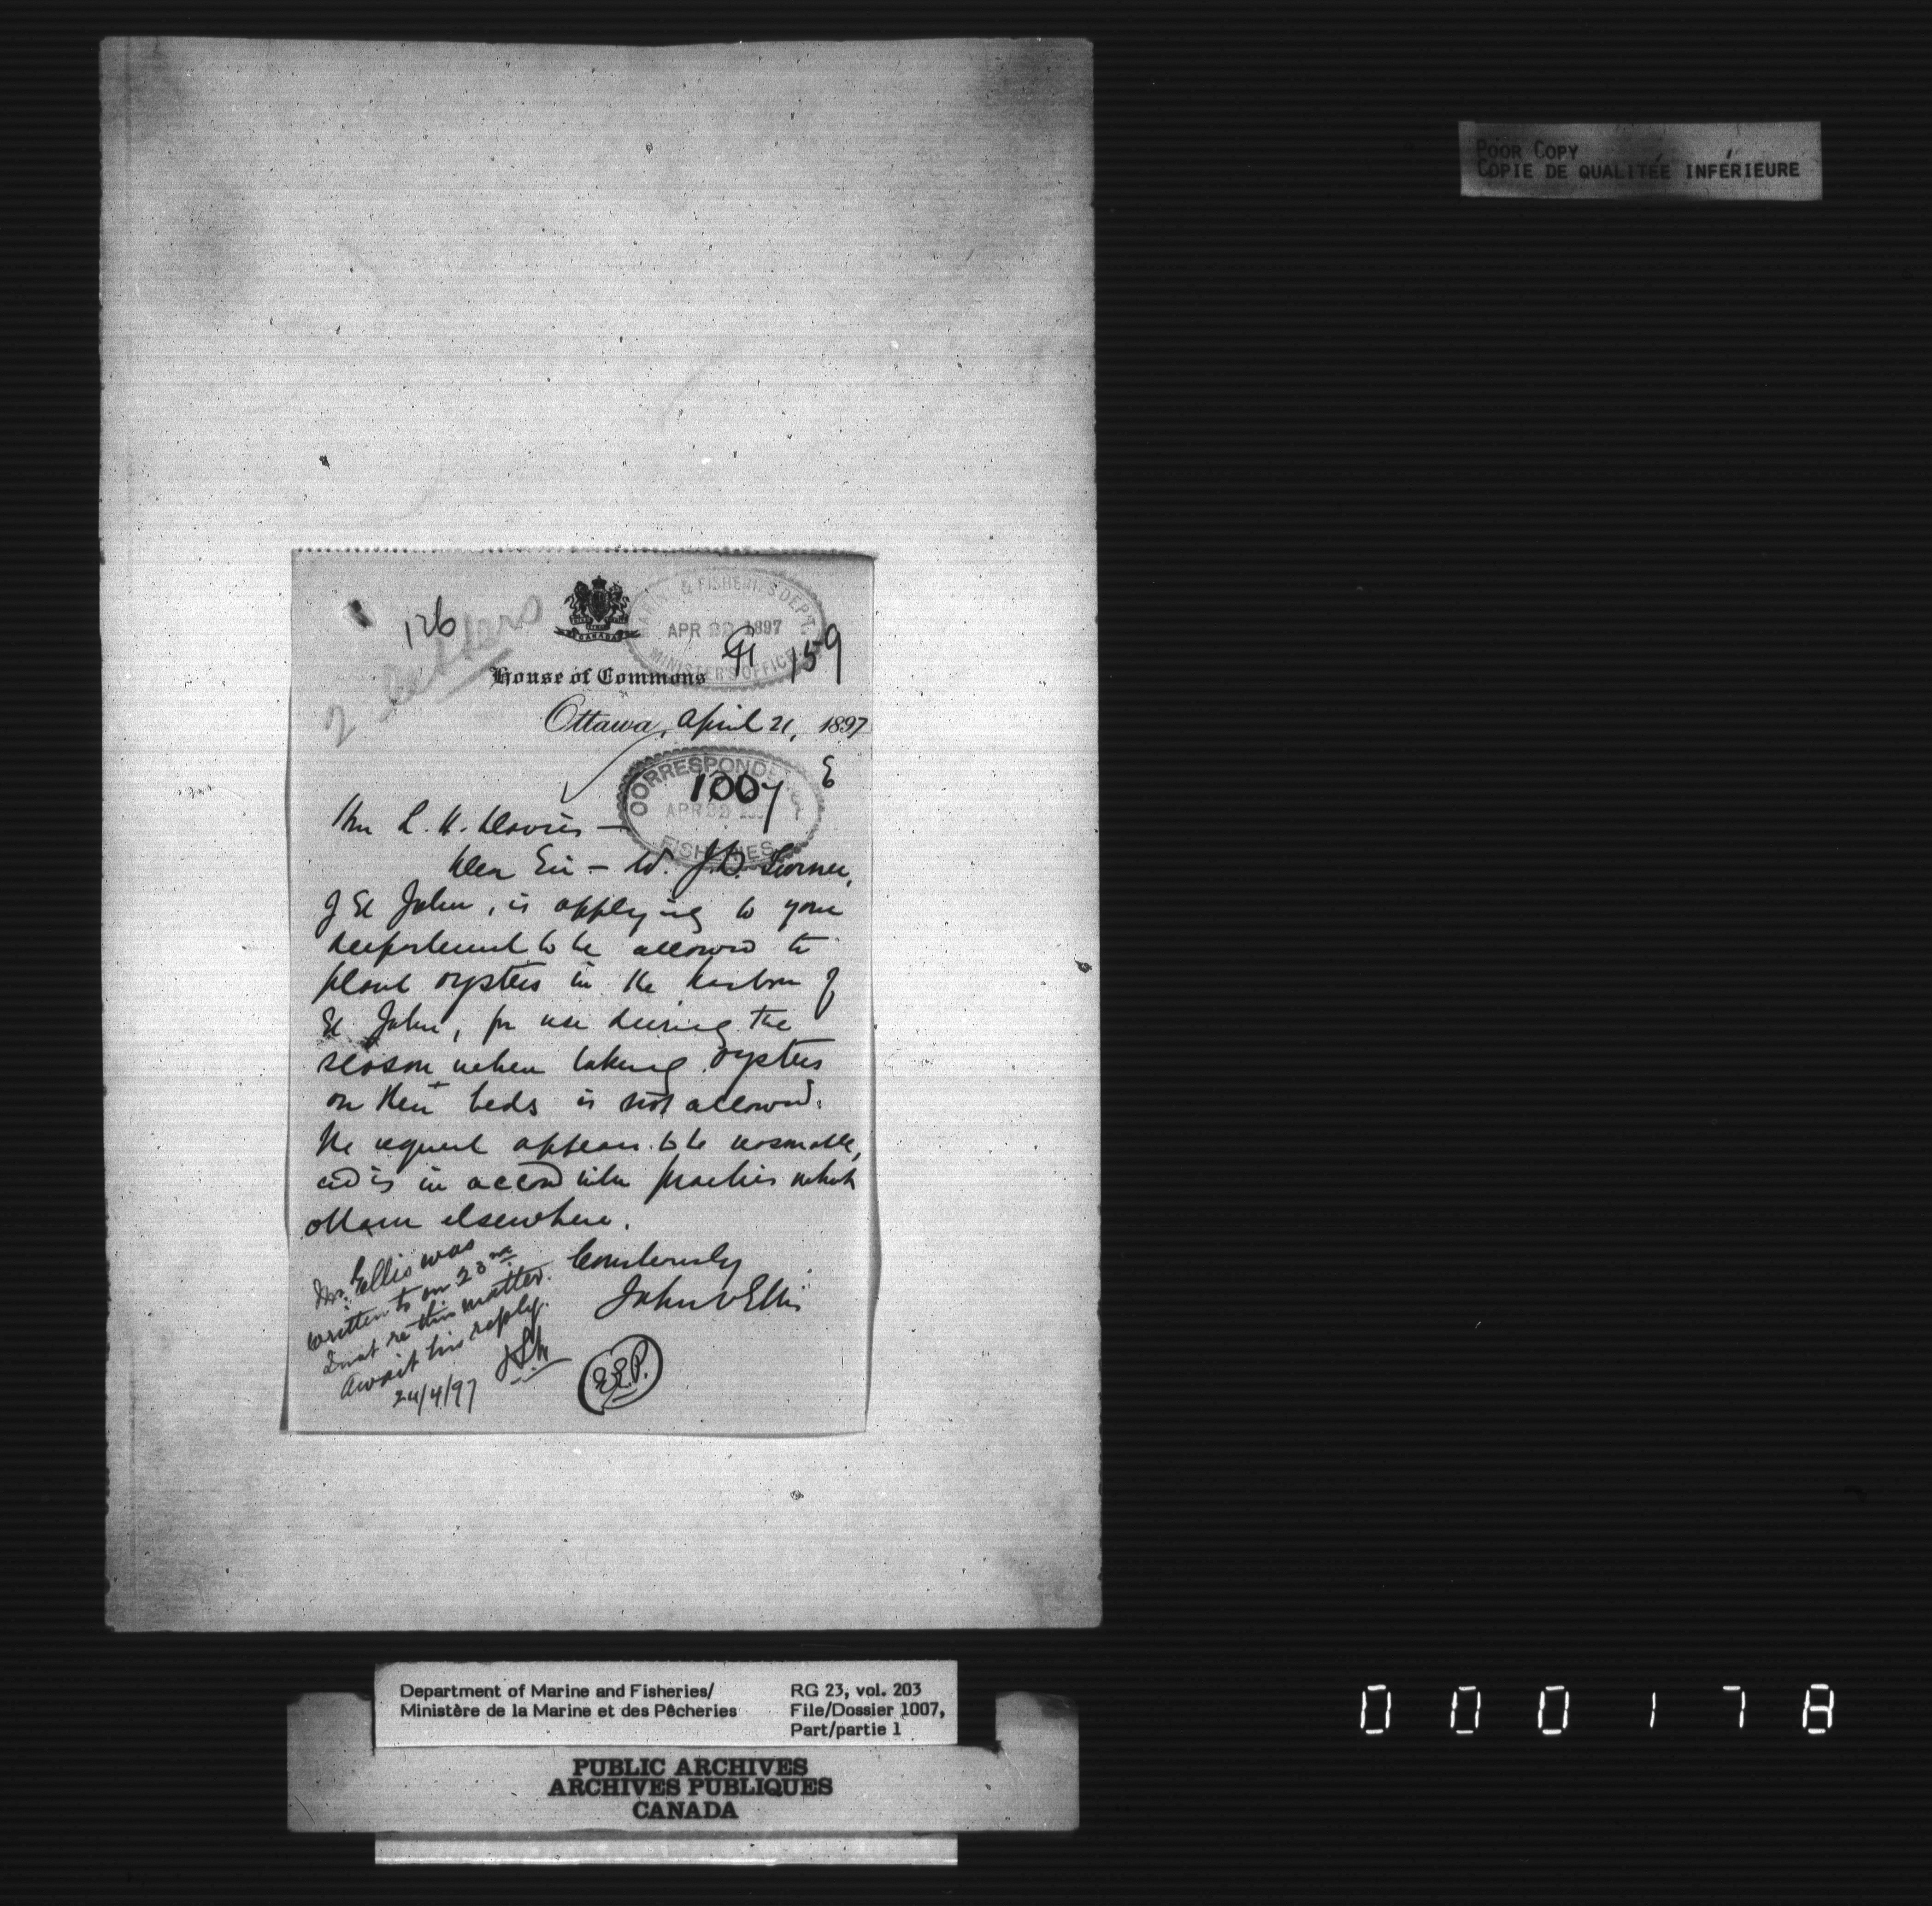 POOR COPY
COPIE DE QUALITÉE INFÉRIEURE
126
2 letters
CANADA
MARINE & FISHERIES DEPT.
APR 22 1897
MINISTER'S OFFICE
159
House of Commons
Ottawa, April 21, 1897
CORRESPONDENCE
1007
APR 22
FISHERIES
E
Hon L. H. Davies —
Dear Sir — W. J.D. Turner,
of St John, is applying to your
department to be allowed to
plant oysters in the harbour of
St John, for use during the
season when taking oysters
on their beds is not allowed.
The request appears to be reasonable,
and is in accord with practice which
obtain elsewhere.
Courteously
John V Ellis
Mr. Ellis was
written to on 23rd
Inst re this matter.
Await his reply.
24/4/97
E.E.P.
Department of Marine and Fisheries/
Ministère de la Marine et des Pêcheries
RG 23, vol. 203
File/Dossier 1007,
Part/partie 1
PUBLIC ARCHIVES
ARCHIVES PUBLIQUES
CANADA
000178